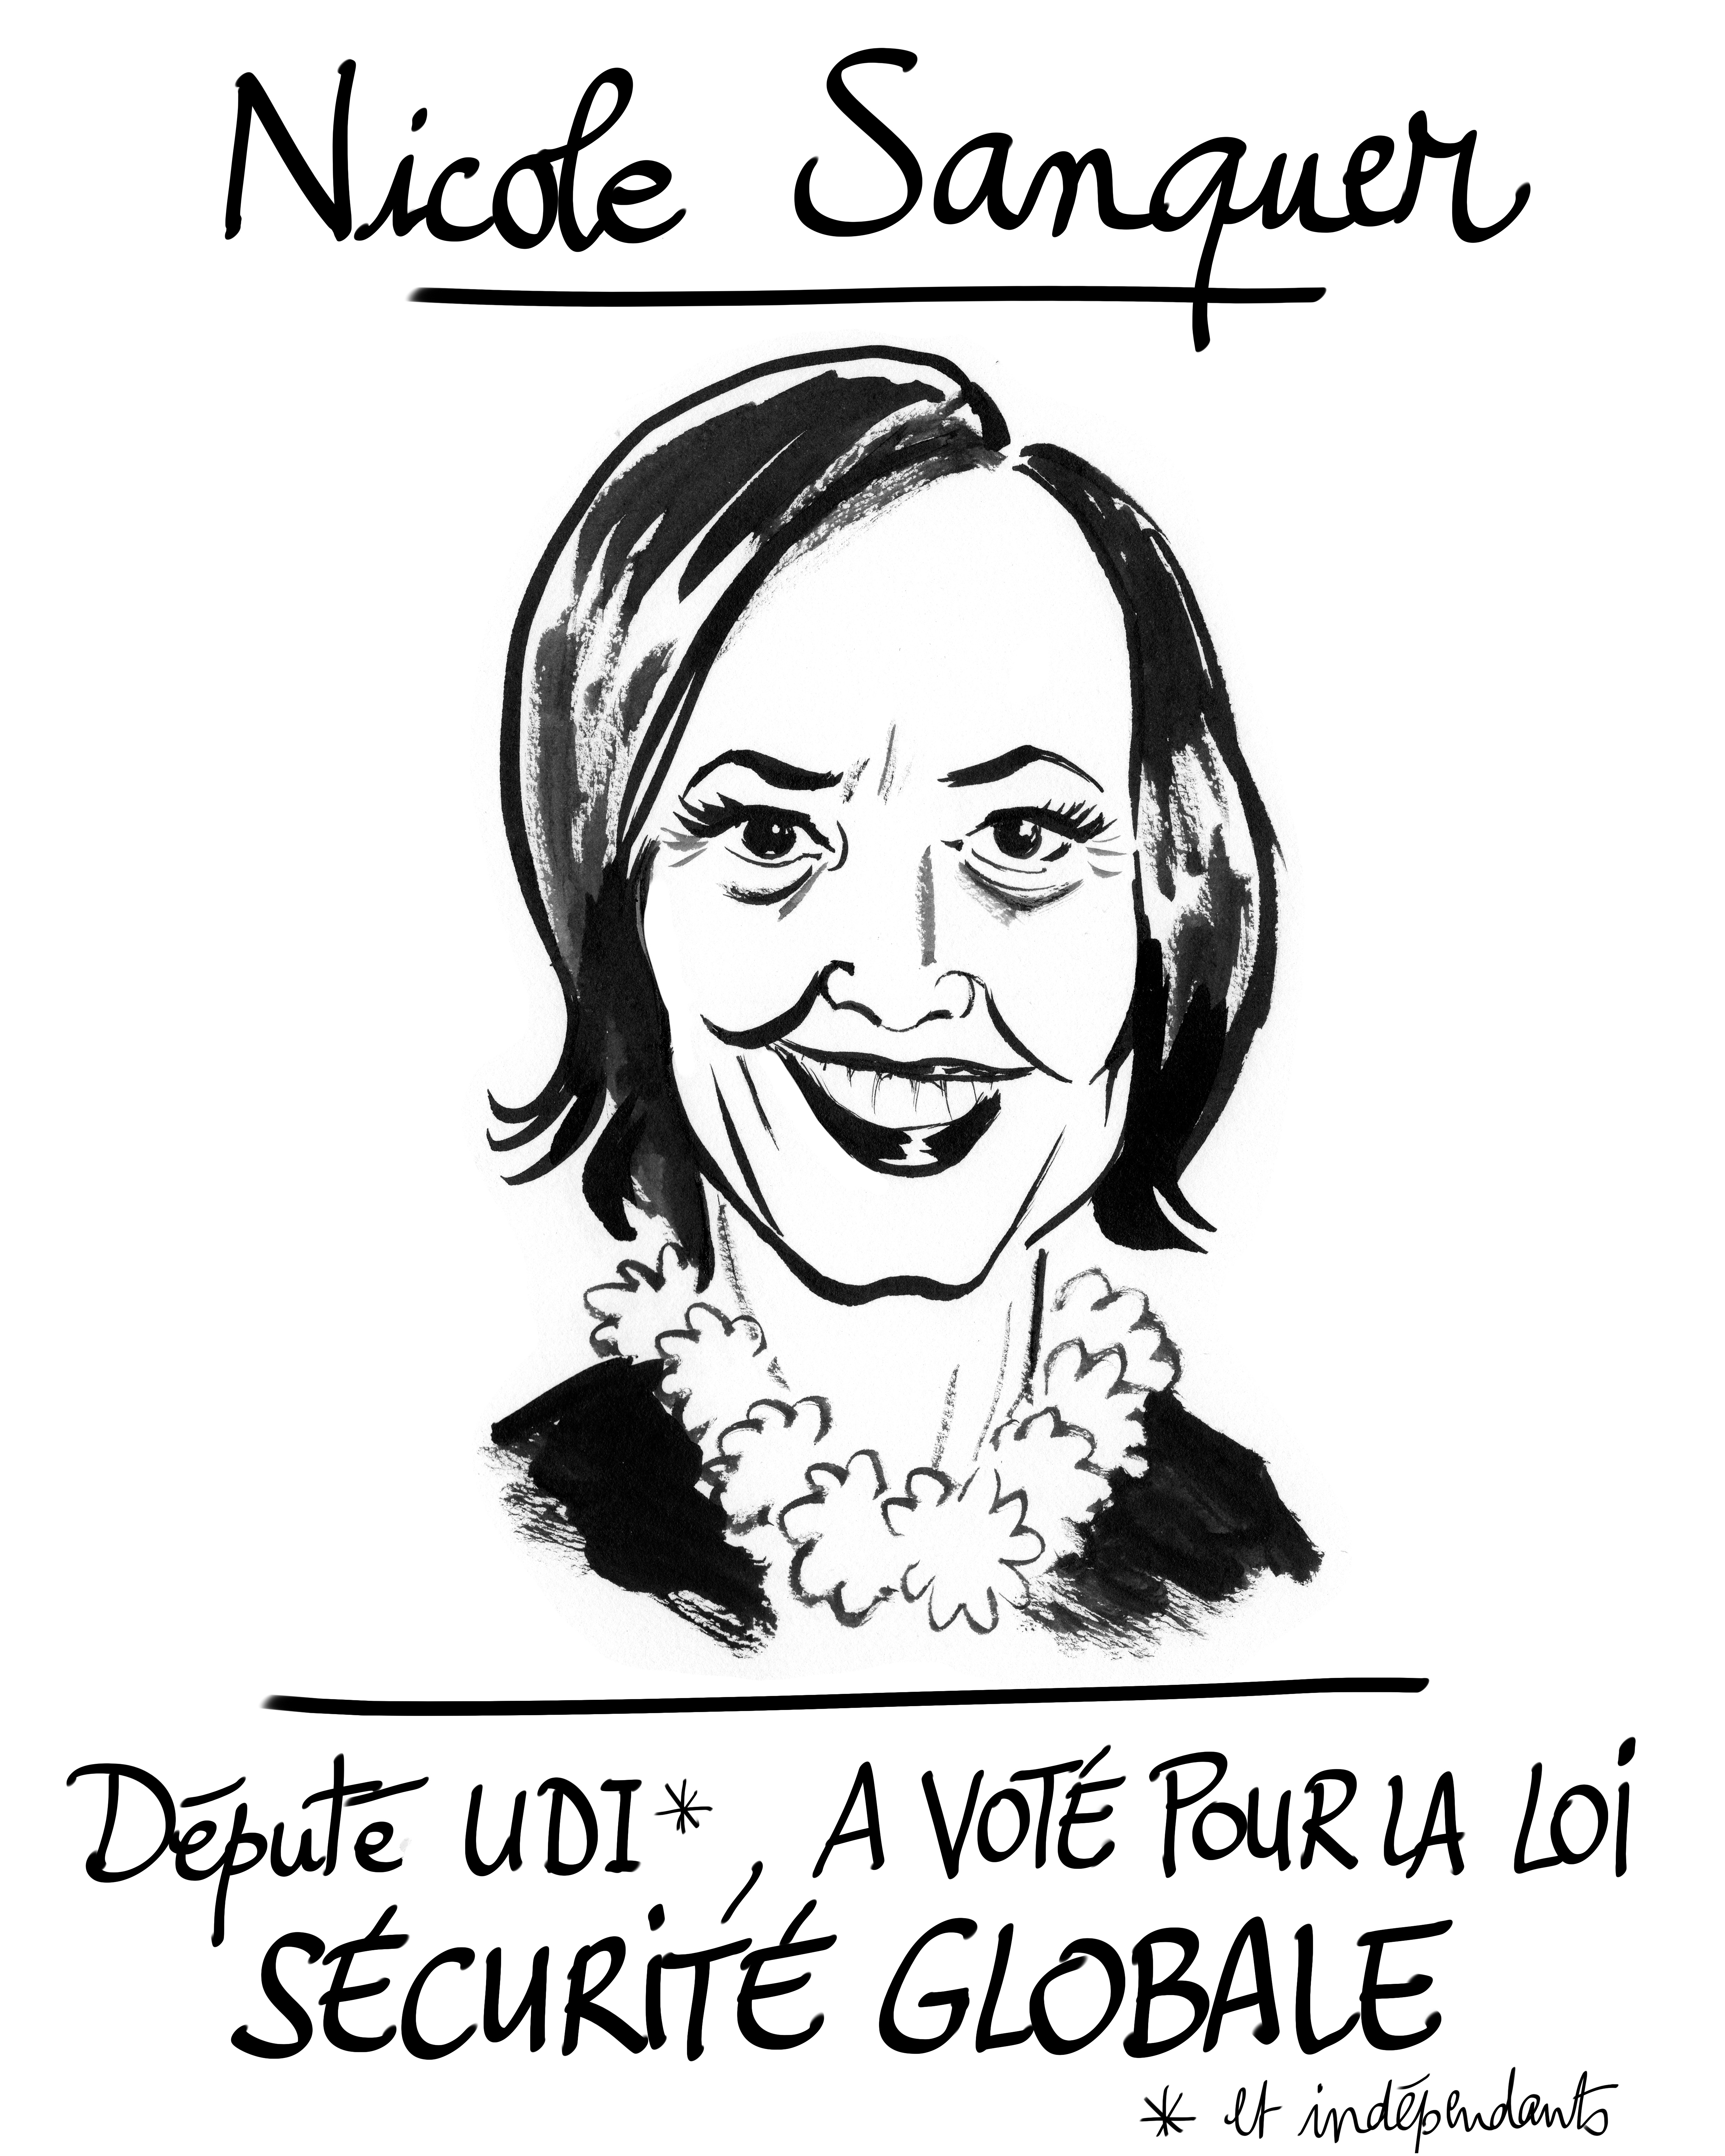 Nicole Sanquer
Députe UDI*, A VOTÉ POUR LA LOi
SÉCURiTÉ GLOBALE
* et indépendants